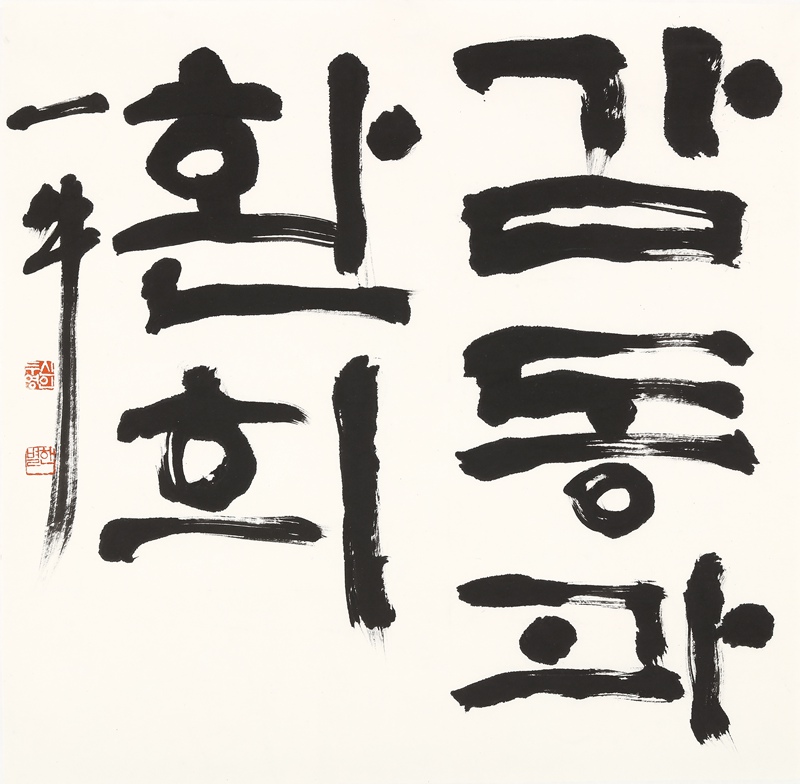 감동과
환희
一牛
한별